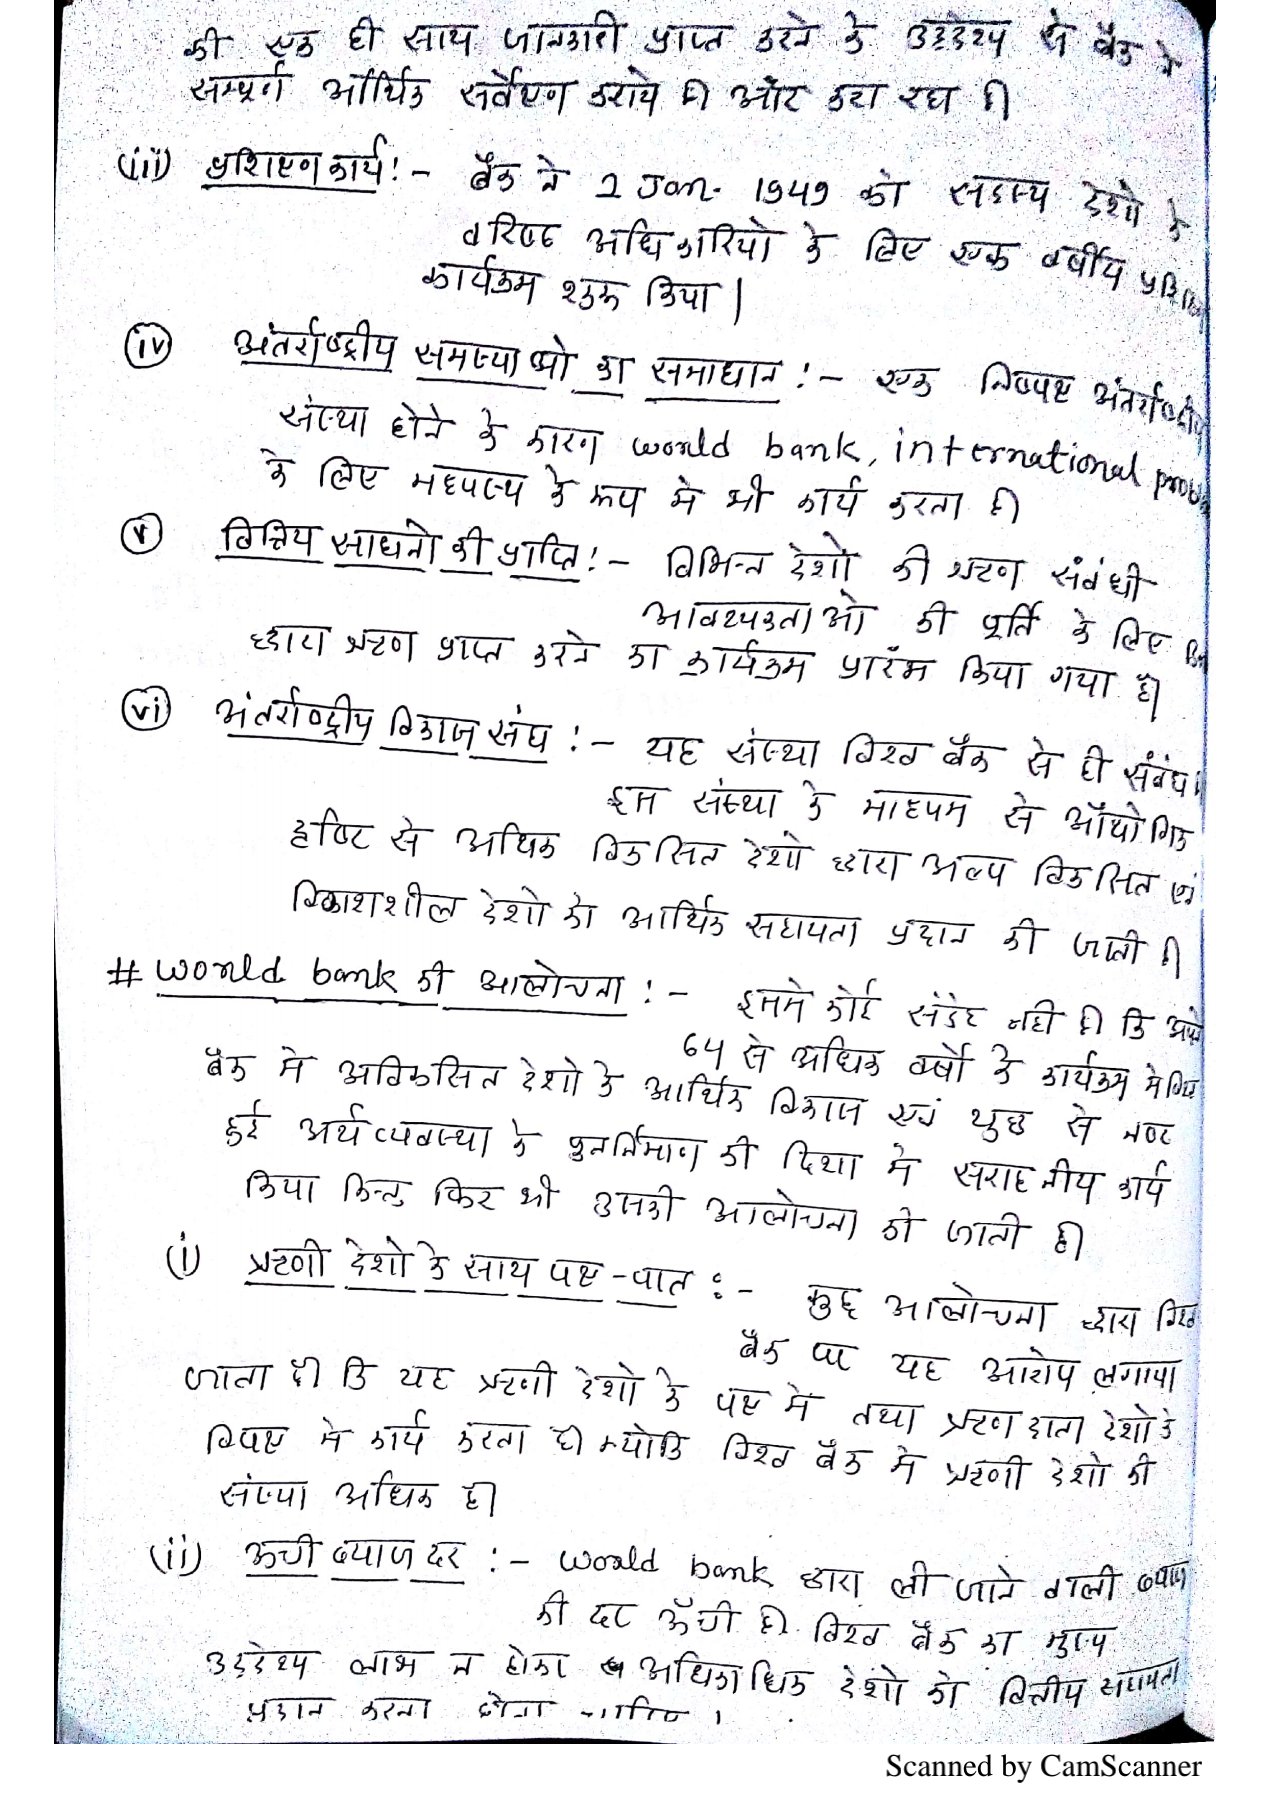 की एक ही साथ जानकारी प्राप्त करने के उद्देश्य से बैंक ने
सम्पूर्ण आर्थिक सर्वेक्षण कराये है और करा रहा है।
(iii) प्रशिक्षण कार्य :- बैंक ने 2 Jan. 1949 को सदस्य देशो के
वरिष्ठ अधिकारियो के लिए एक वर्षीय
कार्यक्रम शुरू किया।
(iv) अंतर्राष्ट्रीय समस्याओ का समाधान :- एक निष्पक्ष अंतर्राष्ट्रीय
संस्था होने के कारण world bank, international
के लिए मध्यस्थ के रूप मे भी कार्य करता है।
(v) वित्तिय साधनो की प्राप्ति :- विभिन्न देशो की ऋण संबंधी
आवश्यकताओ की पूर्ति के लिए
द्वारा ऋण प्राप्त करने का कार्यक्रम प्रारंभ किया गया है।
(vi) अंतर्राष्ट्रीय विकास संघ :- यह संस्था विश्व बैंक से ही
इस संस्था के माध्यम से औद्योगिक
दृष्टि से अधिक विकसित देशो द्वारा अल्प विकसित एवं
विकाशशील देशो को आर्थिक सहायता प्रदान की जाती है।
# world bank की आलोचना :- इसमे कोई संदेह नही है कि अपने
64 से अधिक वर्षो के कार्यक्रम मे
बैंक मे अविकसित देशो के आर्थिक विकास एवं युद्ध से नष्ट
हुई अर्थव्यवस्था के पुनर्निमाण की दिशा मे सराहनीय कार्य
किया किन्तु फिर भी उसकी आलोचना की जाती है।
(i) ऋणी देशो के साथ पक्ष-पात :- कुछ आलोचना द्वारा विश्व
बैंक पर यह आरोप लगाया
जाता है कि यह ऋणी देशो के पक्ष मे तथा ऋण दाता देशो के
विपक्ष मे कार्य करता है क्योकि विश्व बैंक मे ऋणी देशो की
संख्या अधिक है।
(ii) ऊची ब्याज दर :- world bank द्वारा ली जाने वाली ब्याज
की दर ऊँची है। विश्व बैंक का मुख्य
उद्देश्य लाभ न होकर अधिकाधिक देशो को वित्तीय सहायता
प्रदान करना होना चाहिए।
Scanned by CamScanner